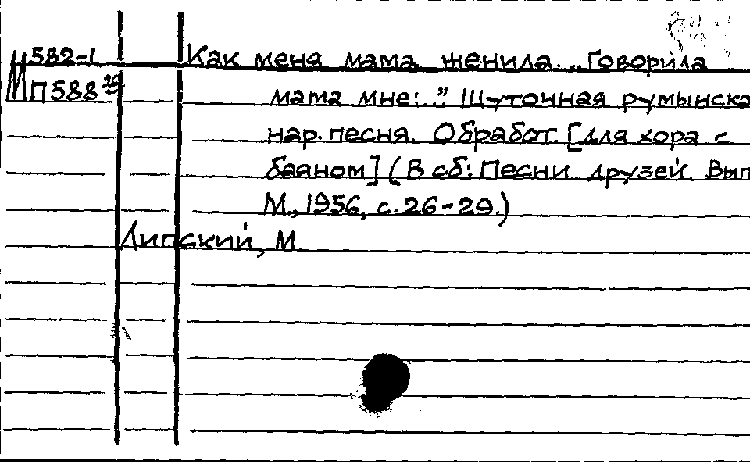 М582-1 Как меня мама женила. „Говорила
МП588 мама мне:.." Шуточная румынска
нар. песня. Обработ. [для хора с
баяном] (В сб: Песни друзей. Вып
М., 1956, с. 26-29.)
Липский, М.